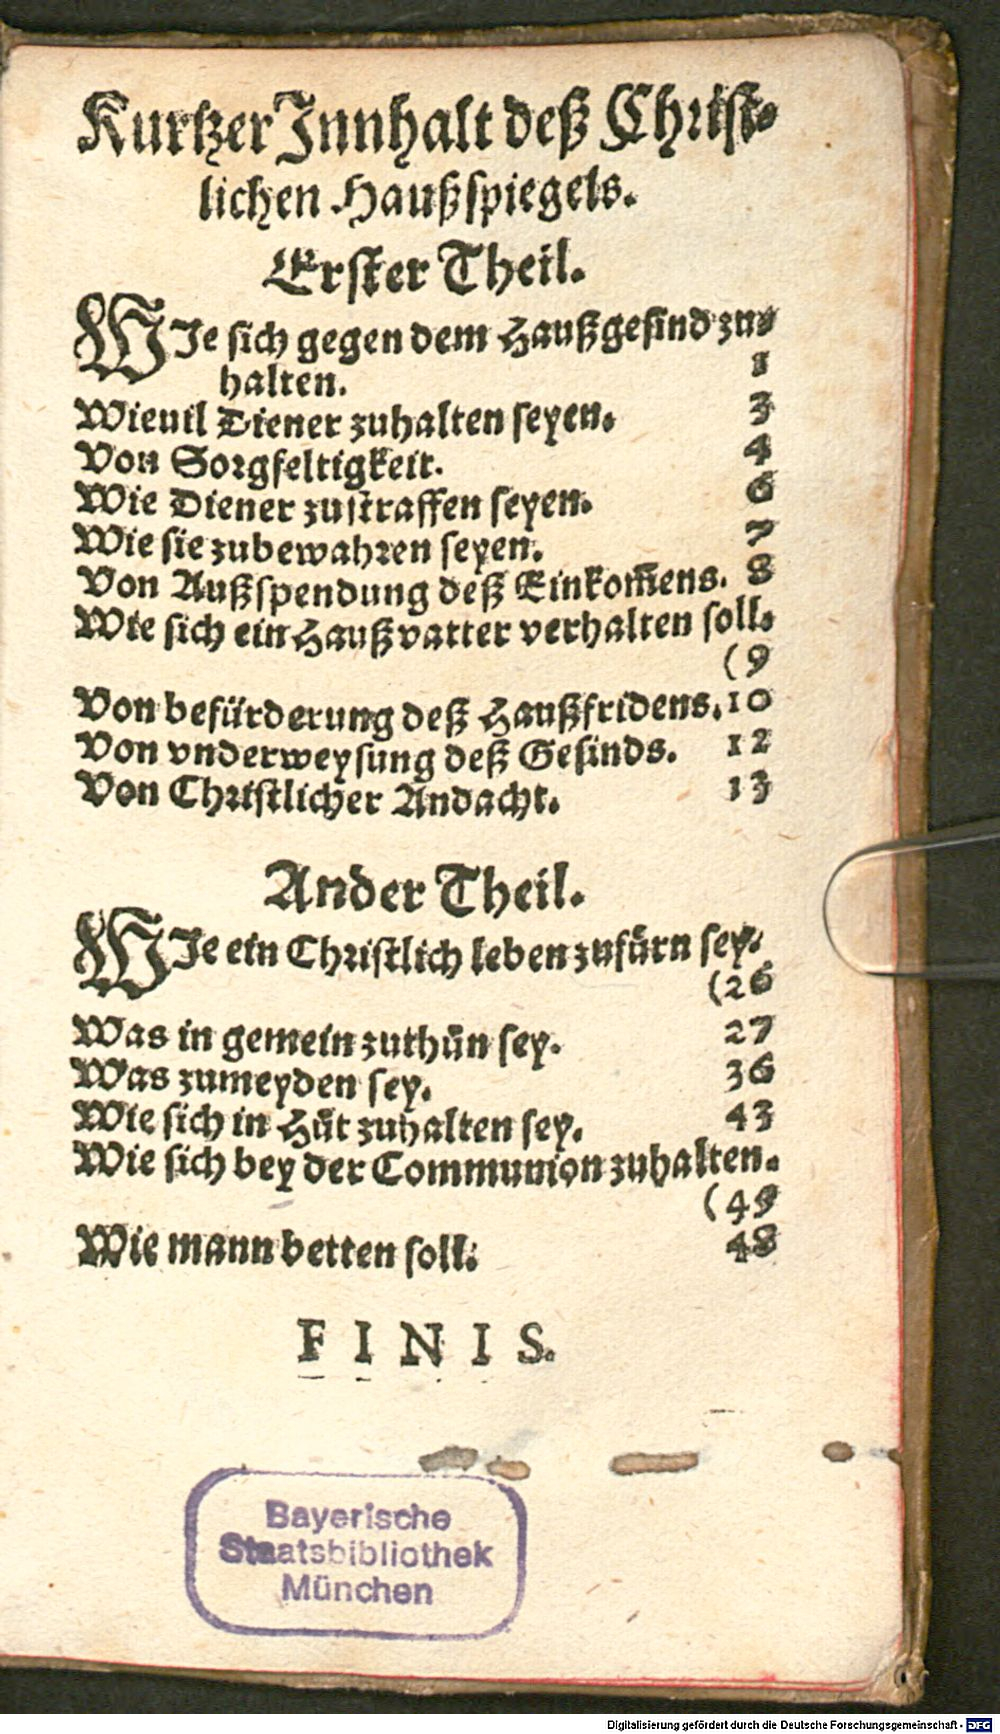 Kurtzer Innhalt deß Christ-
lichen Haußspiegels.
Erster Theil.
WIe sich gegen dem Haußgesind zu-
halten. 1
Wieuil Diener zuhalten seyen. 3
Von Sorgfeltigkeit. 4
Wie Diener zustraffen seyen. 6
Wie sie zubewahren seyen. 7
Von Außspendung deß Einkom̃ens. 8
Wie sich ein Haußvatter verhalten soll.
(9
Von befürderung deß Haußfridens. 10
Von vnderweysung deß Gesinds. 12
Von Christlicher Andacht. 13
Ander Theil.
WIe ein Christlich leben zufürn sey.
(26
Was in gemein zuthůn sey. 27
Was zumeyden sey. 36
Wie sich in Hůt zuhalten sey. 43
Wie sich bey der Communion zuhalten.
(49
Wie mann betten soll. 48
FINIS.
Bayerische
Staatsbibliothek
München
Digitalisierung gefördert durch die Deutsche Forschungsgemeinschaft - DFG